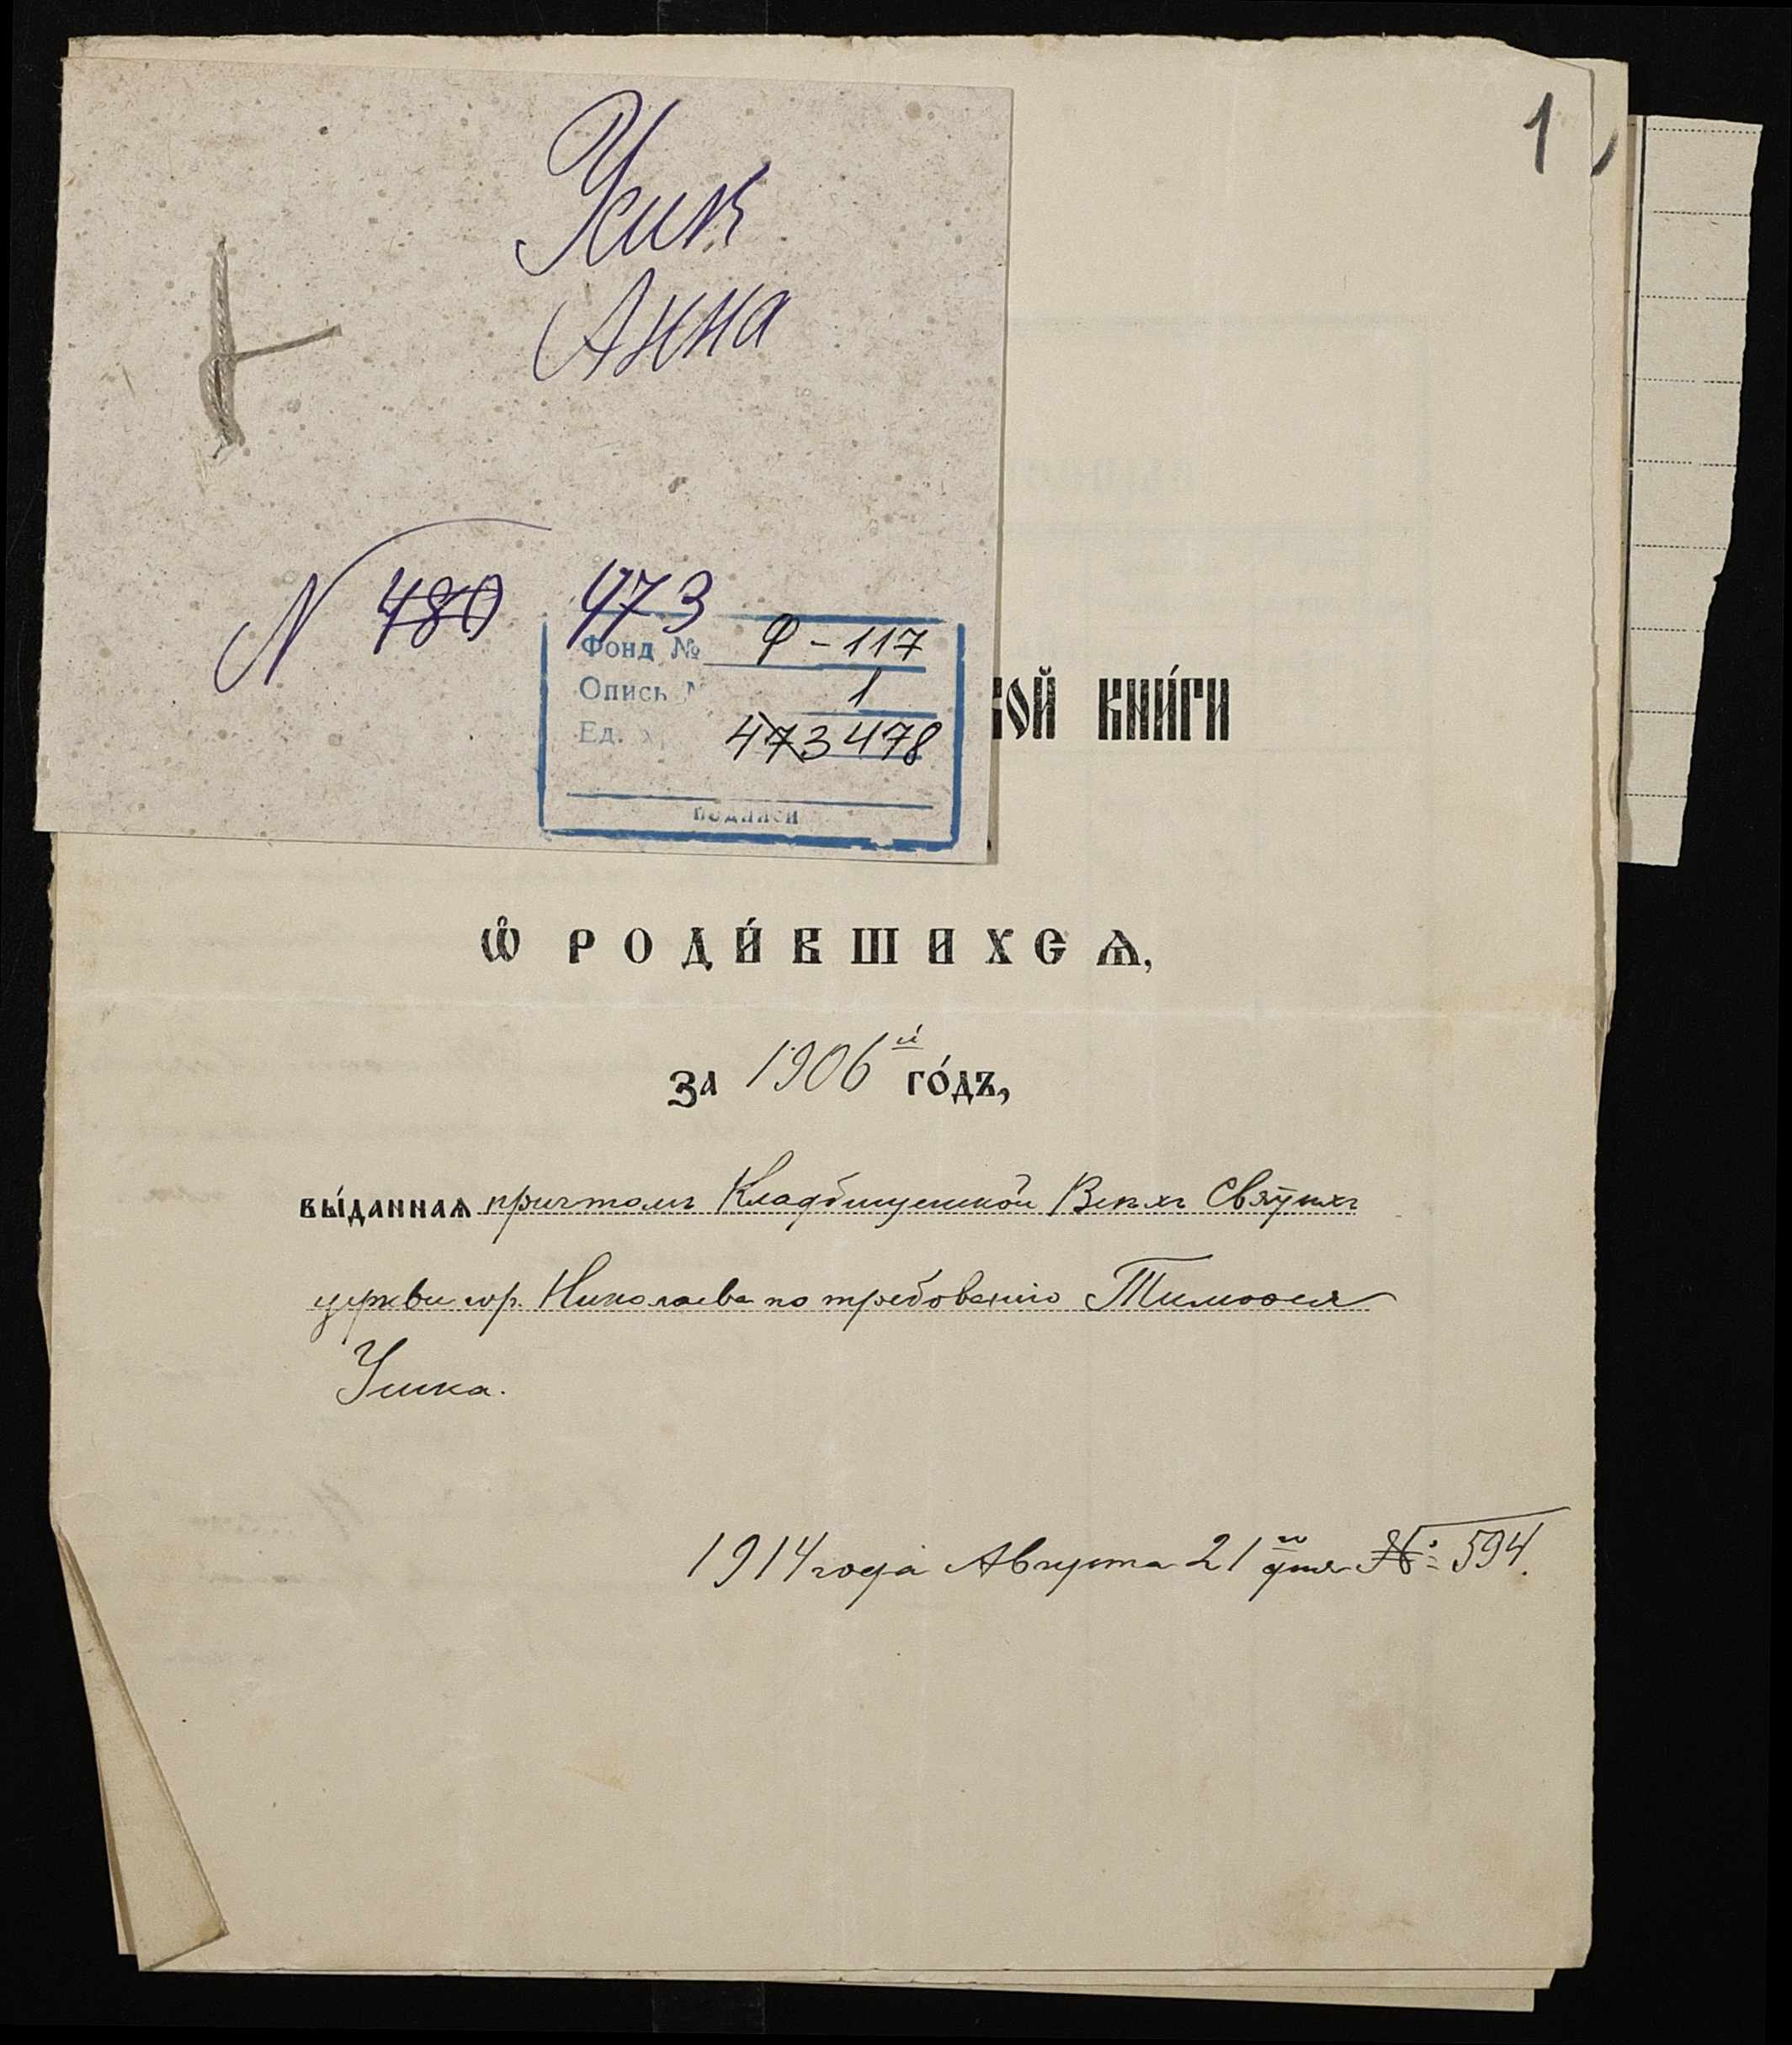 1
Усик
Анна
N 480 473
Фонд № Ф-117
Опись № 1
Ед. х. 473 478
подписи
кой книги
Ѡ РОДИ́ВШИХСЯ,
за 1906й го́дъ,
вы́данная причтомъ Кладбищенской Всѣхъ Святыхъ
церкви гор. Николаева по требованію Тимоѳея
Усика.
1914 года Августа 21го дня № 594.